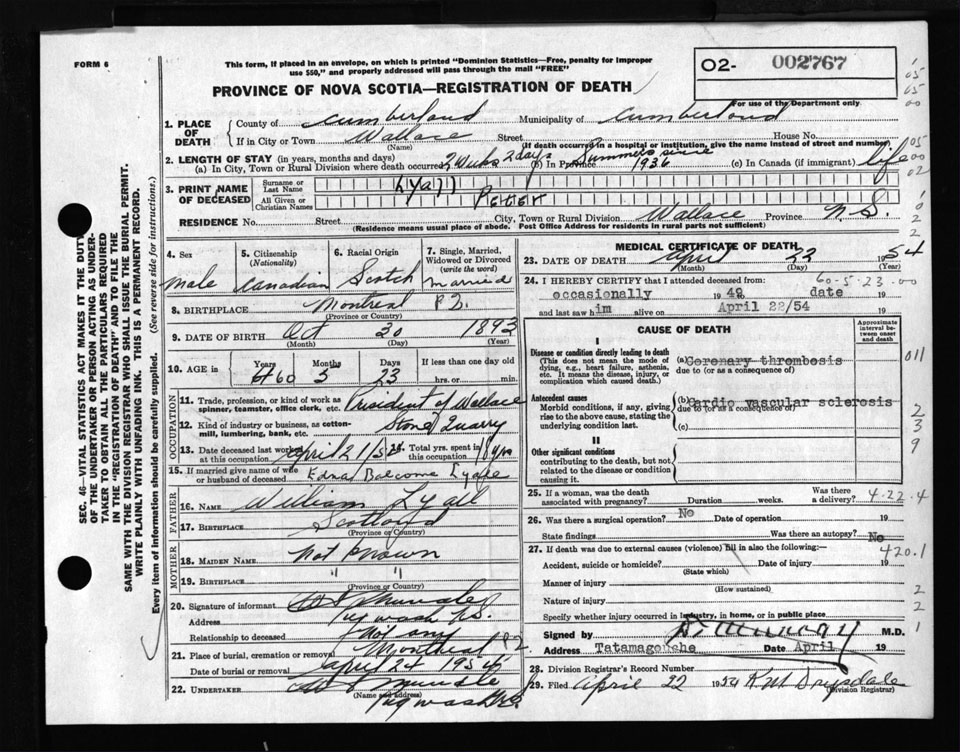 FORM 6
This form, if placed in an envelope, on which is printed "Dominion Statistics—Free, penalty for improper
use $50," and properly addressed will pass through the mail "FREE"
02- 002767
PROVINCE OF NOVA SCOTIA—REGISTRATION OF DEATH
For use of the Department only
1. PLACE OF DEATH County of Cumberland Municipality of Cumberland
If in City or Town Wallace Street House No.
(Name) (If death occurred in a hospital or institution, give the name instead of street and number)
2. LENGTH OF STAY (in years, months and days)
(a) In City, Town or Rural Division where death occurred 2 Wks 2 days (b) In Province Summers since 1936 (c) In Canada (if immigrant) life
3. PRINT NAME OF DECEASED Surname or Last Name Lyall
All Given or Christian Names Peter
RESIDENCE No. Street City, Town or Rural Division Wallace Province N.S.
(Residence means usual place of abode. Post Office Address for residents in rural parts not sufficient)
4. Sex Male
5. Citizenship (Nationality) Canadian
6. Racial Origin Scotch
7. Single, Married, Widowed or Divorced (write the word) Married
8. BIRTHPLACE Montreal P.Q.
(Province or Country)
9. DATE OF BIRTH Oct 30 1893
(Month) (Day) (Year)
10. AGE in Years 60 Months 5 Days 23 If less than one day old hrs. or min.
OCCUPATION
11. Trade, profession or kind of work as spinner, teamster, office clerk, etc. President of Wallace
12. Kind of industry or business, as cotton-mill, lumbering, bank, etc. Stone Quarry
13. Date deceased last worked at this occupation April 21/54 Total yrs. spent in this occupation 18 yrs
15. If married give name of wife or husband of deceased Edna Balcome Lyall
FATHER
16. NAME William Lyall
17. BIRTHPLACE Scotland
(Province or Country)
MOTHER
18. MAIDEN NAME Not Known
19. BIRTHPLACE " "
(Province or Country)
20. Signature of informant Mundle
Address Pugwash N.S.
Relationship to deceased Not any
21. Place of burial, cremation or removal Montreal P.Q.
Date of burial or removal April 24 1954
22. UNDERTAKER Mundle
(Name and address) Pugwash N.S.
MEDICAL CERTIFICATE OF DEATH
23. DATE OF DEATH April 22 1954
(Month) (Day) (Year)
60-5-23-00
24. I HEREBY CERTIFY that I attended deceased from:
occasionally 1949 to date 19
and last saw him alive on April 22/54
CAUSE OF DEATH
Approximate interval between onset and death
I
Disease or condition directly leading to death (This does not mean the mode of dying, e.g., heart failure, asthenia, etc. It means the disease, injury, or complication which caused death.)
(a) Coronary thrombosis
due to (or as a consequence of)
Antecedent causes
Morbid conditions, if any, giving rise to the above cause, stating the underlying condition last.
(b) Cardio vascular sclerosis
due to (or as a consequence of)
(c)
II
Other significant conditions contributing to the death, but not related to the disease or condition causing it.
25. If a woman, was the death associated with pregnancy? Duration weeks. Was there a delivery?
4-22-4
26. Was there a surgical operation? No Date of operation 19
State findings Was there an autopsy? No
27. If death was due to external causes (violence) fill in also the following:
420.1
Accident, suicide or homicide? Date of injury 19
(State which)
Manner of injury
(How sustained)
Nature of injury
Specify whether injury occurred in industry, in home, or in public place
Signed by Murray M.D.
Tatamagouche Date April 19
28. Division Registrar's Record Number
29. Filed April 22 1954 K M Drysdale
(Division Registrar)
SEC. 46—VITAL STATISTICS ACT MAKES IT THE DUTY
OF THE UNDERTAKER OR PERSON ACTING AS UNDER-
TAKER TO OBTAIN ALL THE PARTICULARS REQUIRED
IN THE "REGISTRATION OF DEATH" AND TO FILE THE
SAME WITH THE DIVISION REGISTRAR WHO SHALL ISSUE THE BURIAL PERMIT.
WRITE PLAINLY WITH UNFADING INK. THIS IS A PERMANENT RECORD.
Every item of information should be carefully supplied. (See reverse side for instructions.)
1
05
65
00
05
00
02
1
0
2
2
011
2
3
9
2
2
1